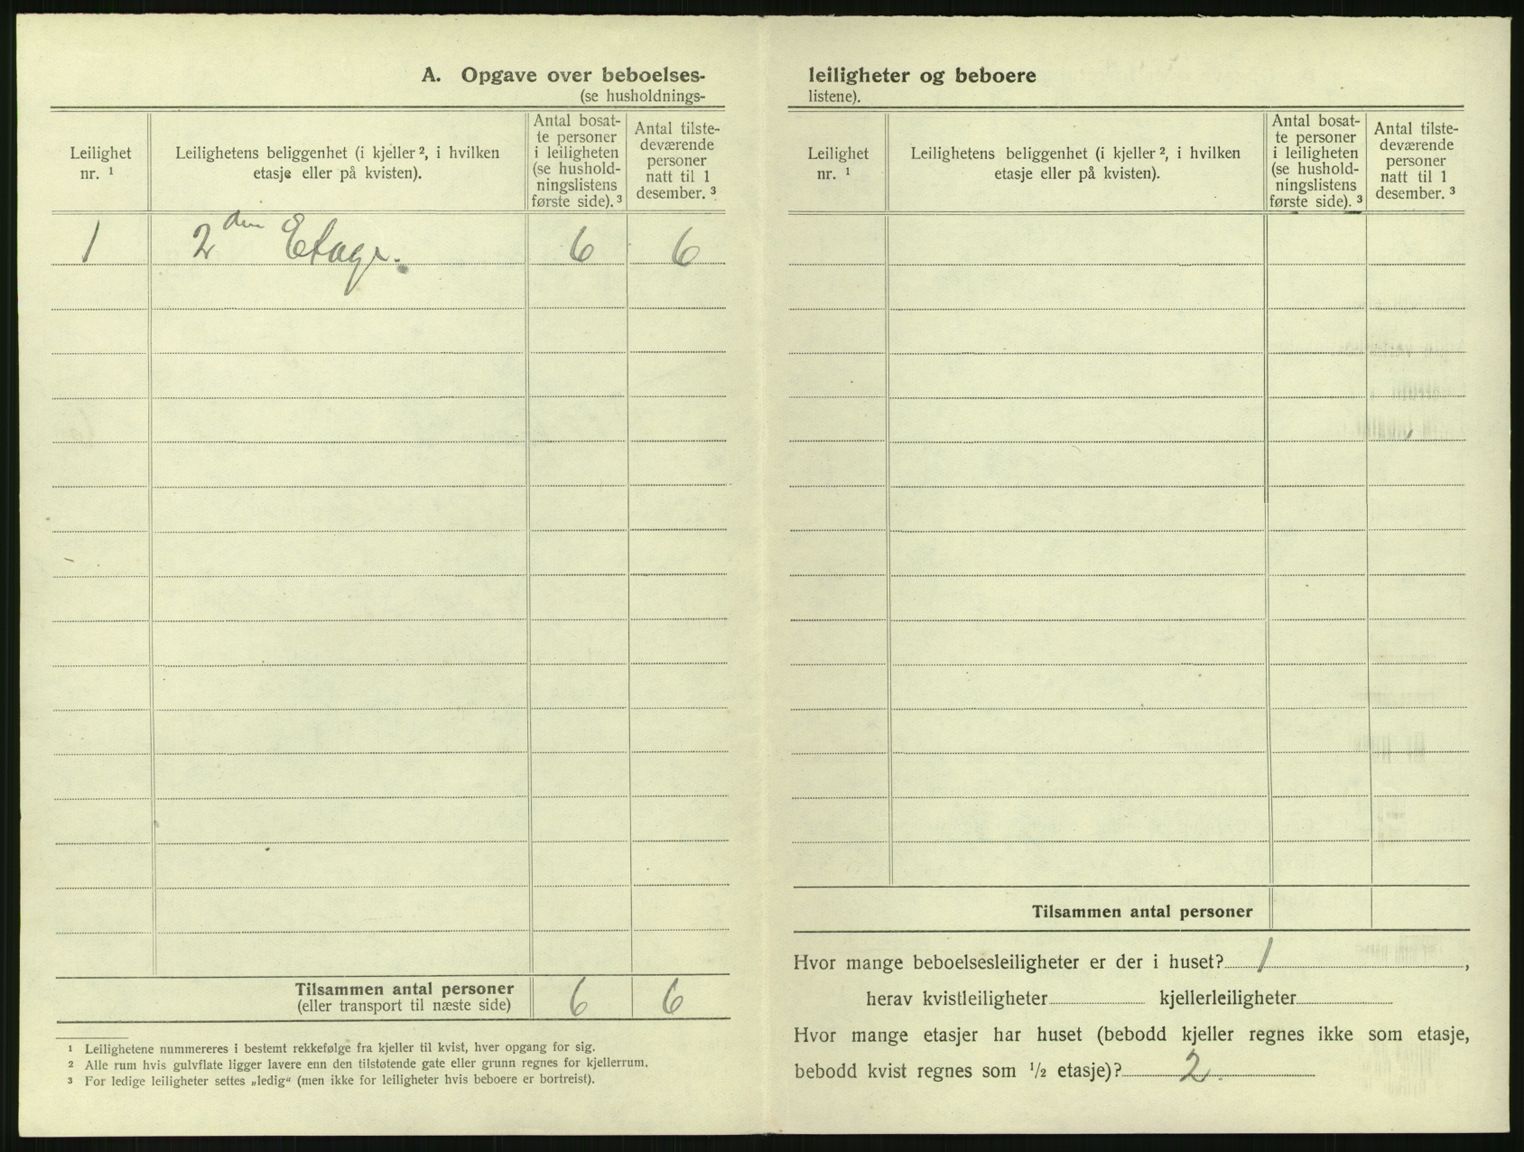 A. Opgave over beboelses-
(se husholdnings-
Leilighet
nr. ¹
Leilighetens beliggenhet (i kjeller ², i hvilken
etasje eller på kvisten).
Antal bosat-
te personer
i leiligheten
(se hushold-
ningslistens
første side). ³
Antal tilste-
deværende
personer
natt til 1
desember. ³
1 2den Etage. 6 6
Tilsammen antal personer
(eller transport til næste side) 6 6
¹ Leilighetene nummereres i bestemt rekkefølge fra kjeller til kvist, hver opgang for sig.
² Alle rum hvis gulvflate ligger lavere enn den tilstøtende gate eller grunn regnes for kjellerrum.
³ For ledige leiligheter settes „ledig“ (men ikke for leiligheter hvis beboere er bortreist).
leiligheter og beboere
listene).
Leilighet
nr. ¹
Leilighetens beliggenhet (i kjeller ², i hvilken
etasje eller på kvisten).
Antal bosat-
te personer
i leiligheten
(se hushold-
ningslistens
første side). ³
Antal tilste-
deværende
personer
natt til 1
desember. ³
Tilsammen antal personer
Hvor mange beboelsesleiligheter er der i huset? 1,
herav kvistleiligheter kjellerleiligheter
Hvor mange etasjer har huset (bebodd kjeller regnes ikke som etasje,
bebodd kvist regnes som ½ etasje)? 2.